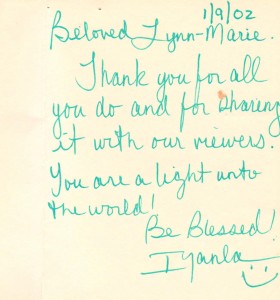 1/9/02
Beloved Lynn-Marie.
Thank you for all
you do and for sharing
it with our viewers.
You are a light unto
the world!
Be Blessed!
Iyanla